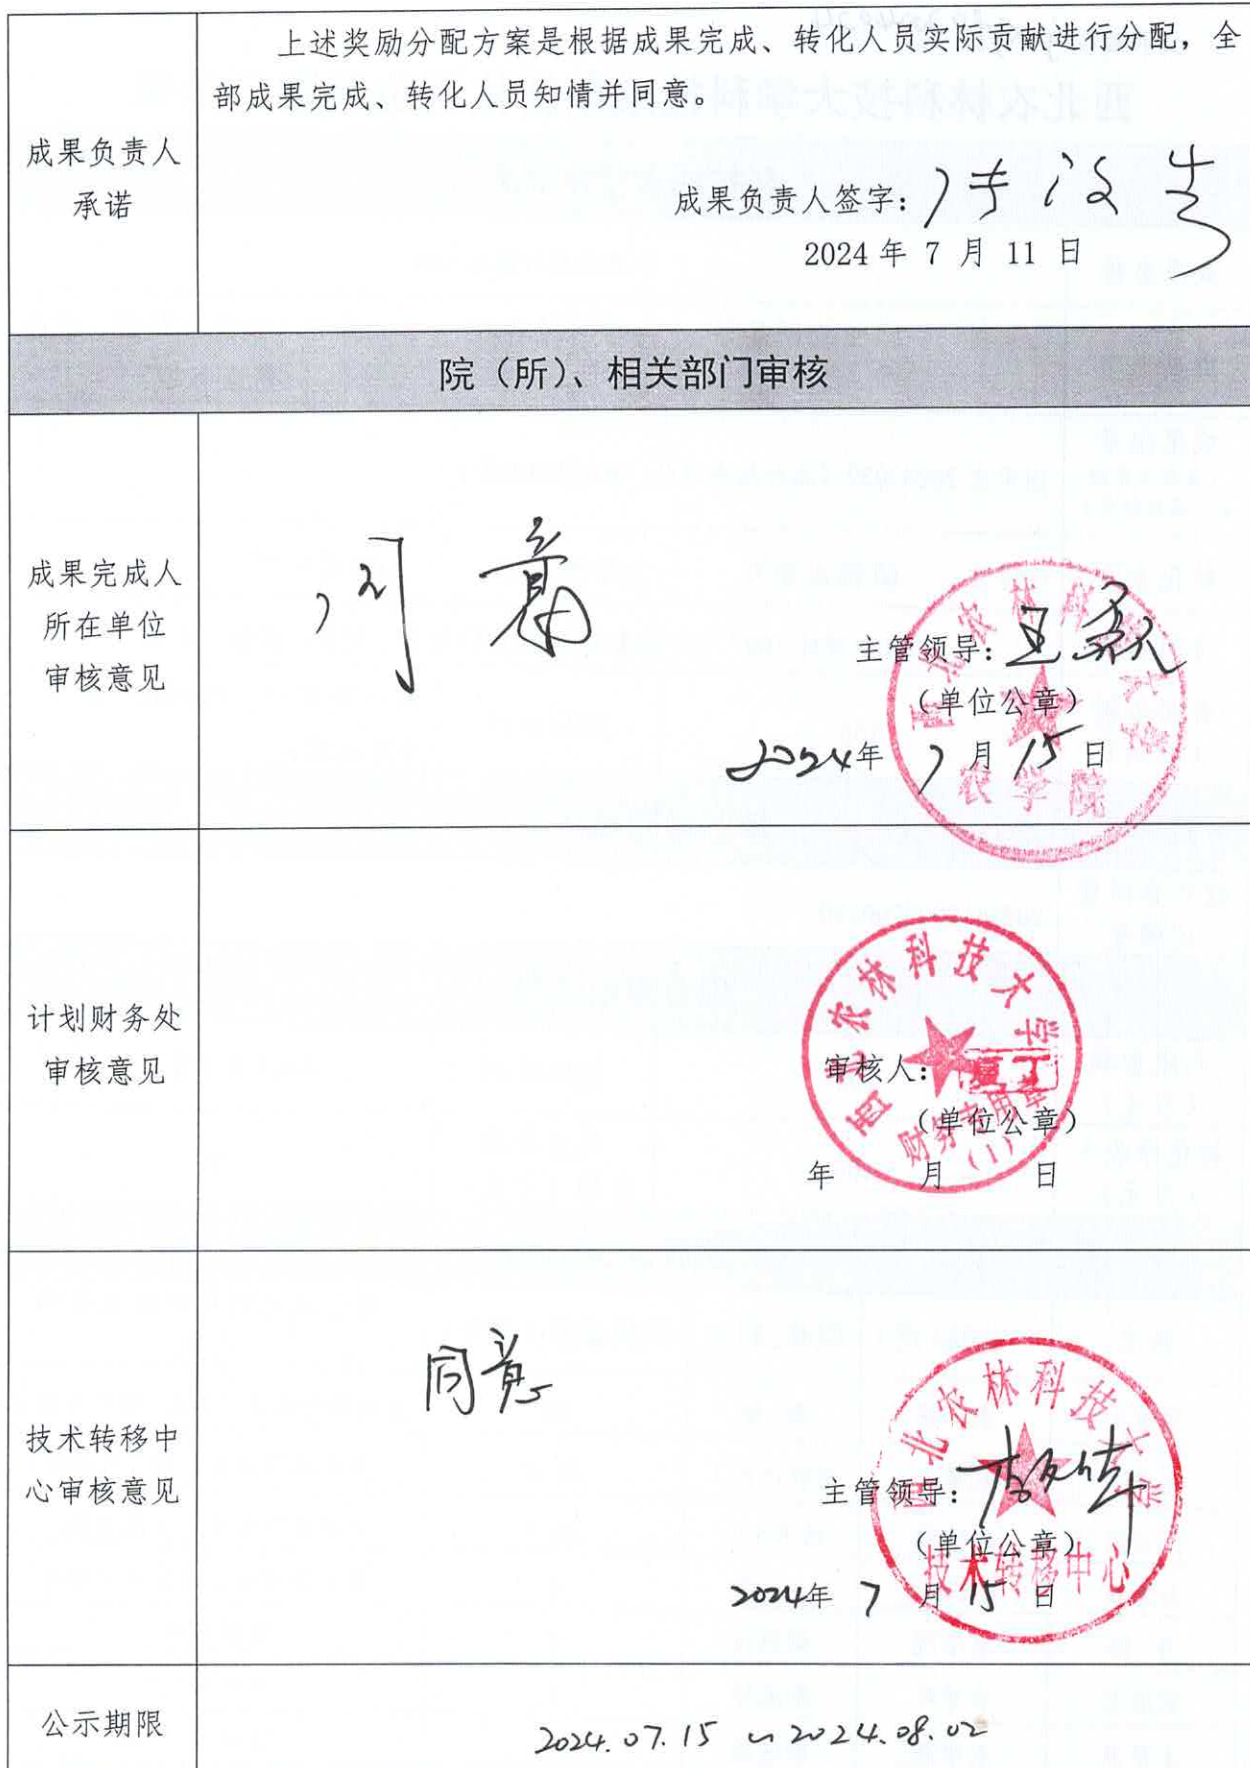 上述奖励分配方案是根据成果完成、转化人员实际贡献进行分配，全
部成果完成、转化人员知情并同意。
成果负责人
承诺
成果负责人签字：
2024 年 7 月 11 日
院（所）、相关部门审核
成果完成人
所在单位
审核意见
同意
主管领导：王
（单位公章）
2024年 7 月 15 日
西北农林科技大学
农学院
计划财务处
审核意见
审核人：
（单位公章）
年 月 日
西北农林科技大学
财务专用章
（1）
技术转移中
心审核意见
同意
主管领导：
（单位公章）
2024年 7 月 15 日
西北农林科技大学
技术转移中心
公示期限
2024.07.15 ~ 2024.08.02